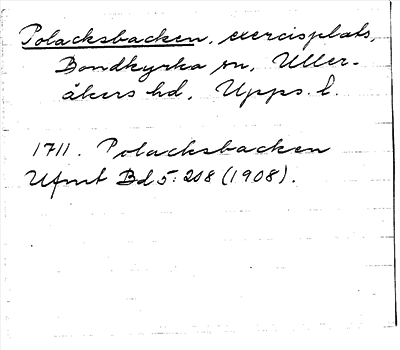 Polacksbacken, exercisplats,
Bondkyrka sn, Uller-
åkers hd, Upps. l.
1711. Polacksbacken
Ufmt Bd 5: 208 (1908).